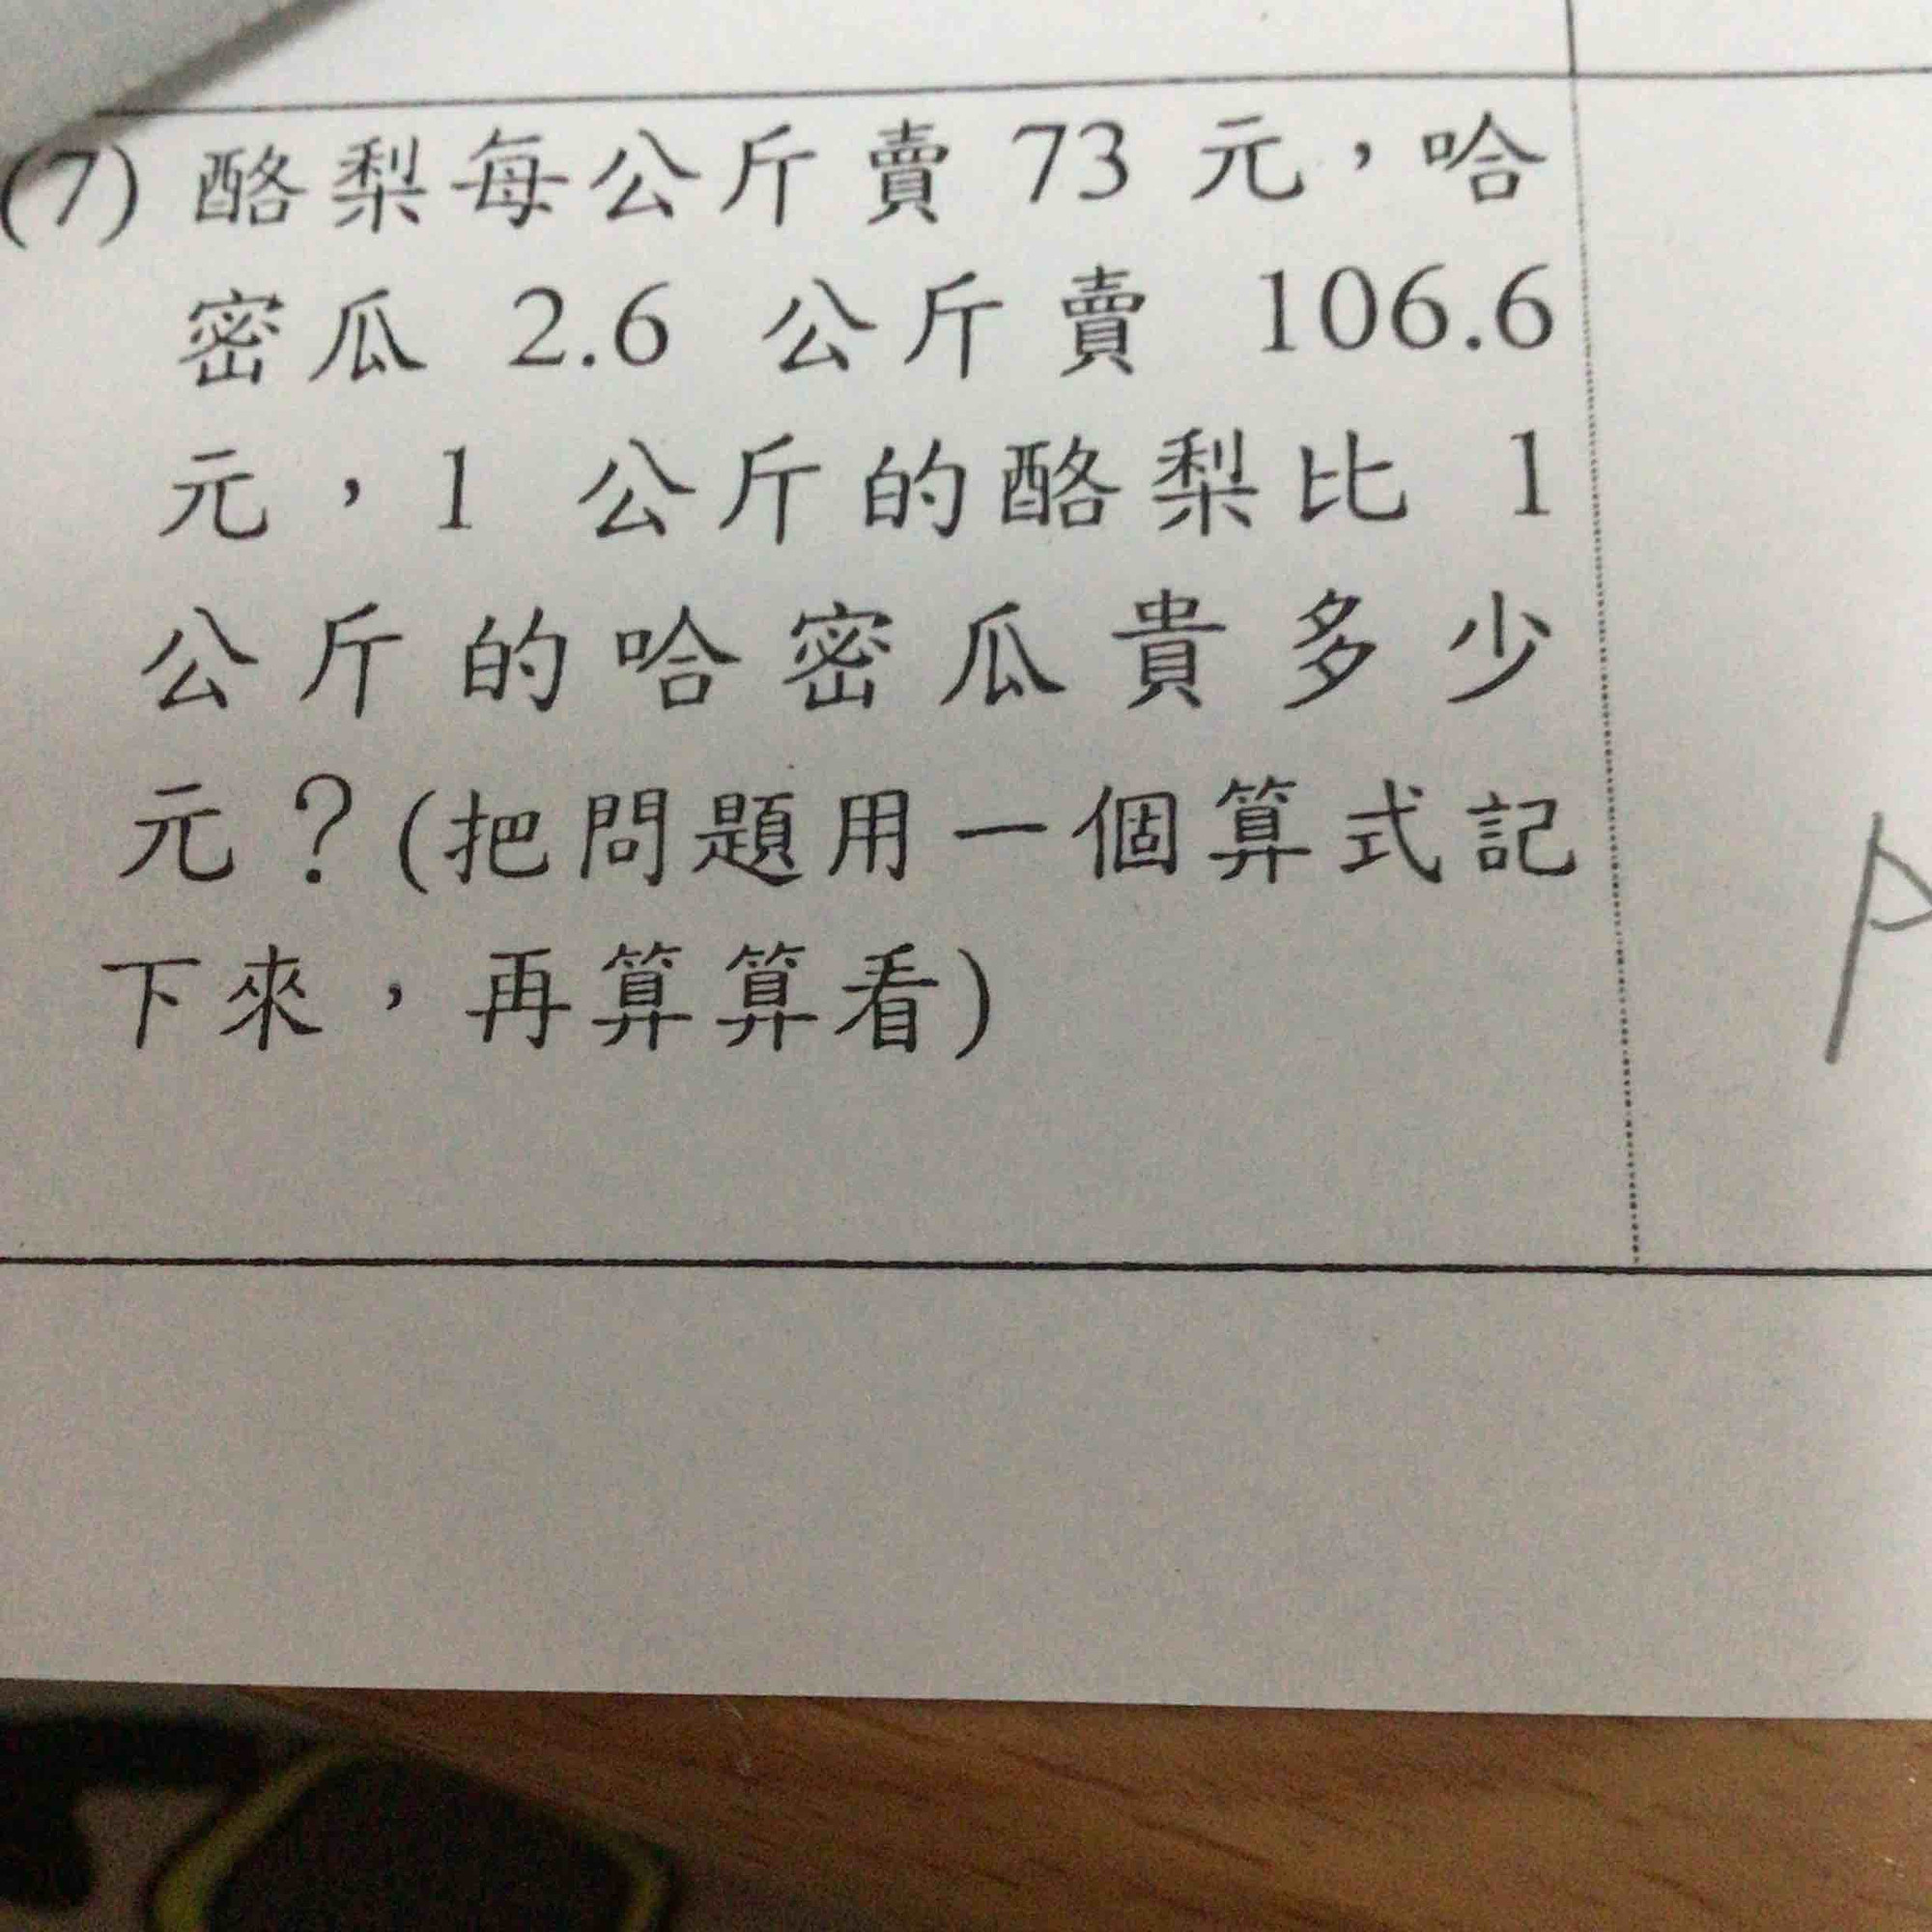 (7) 酪梨每公斤賣 73 元，哈
密瓜 2.6 公斤賣 106.6
元，1 公斤的酪梨比 1
公斤的哈密瓜貴多少
元？(把問題用一個算式記
下來，再算算看)